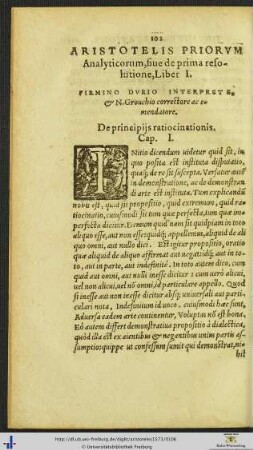 102
ARISTOTELIS PRIORVM
Analyticorum, siue de prima reso-
lutione, Liber I.
FIRMINO DVRIO INTERPRETE,
& N. Grouchio correctore ac e-
mendatore.
De principijs ratiocinationis.
Cap. I.
INitio dicendum uidetur quid sit, in
quo posita est instituta disputatio,
quaq́; de re sit suscepta. Versatur aũt
in demonstratione, ac de demonstran
di arte est instituta. Tum explicandũ
nobis est, quid sit propositio, quid extremum, quid ra-
tiocinatio, cuiusmodi sit tum quæ perfecta, tum quæ im-
perfecta dicitur. Demum quid nam sit quidpiam in toto
aliquo esse, aut non esse: quidq́; appellemus, aliquid de ali
quo omni, aut nullo dici. Est igitur propositio, oratio
quæ aliquid de aliquo affirmat aut negat: idq́; aut in to-
to, aut in parte, aut indefinitè. In toto autem dico, cum
quid aut omni, aut nulli inesse dicitur: cum uerò alicui,
uel non alicui, uel nõ omni id particulare appello. Quod
si inesse aut non inesse dicitur absq; uniuersali aut parti-
culari nota, Indefinitum id uoco, cuiusmodi hæc sunt,
Aduersa eadem arte continentur, Voluptas nõ est bona.
Eò autem differt demonstratiua propositio à dialectica,
quòd illa est ex aientibus & negantibus unius partis as-
sumptio: quippe ut confessum sumit qui demonstrat, ni-
hil
http://dl.ub.uni-freiburg.de/diglit/aristoteles1573/0106
© Universitätsbibliothek Freiburg